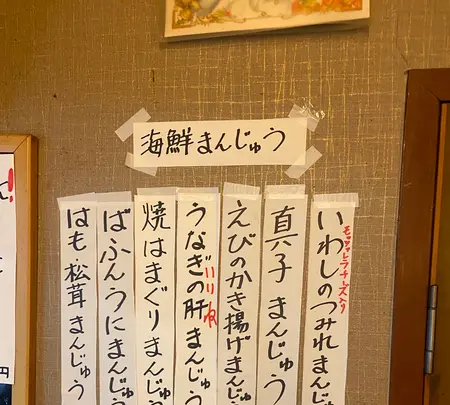 海鮮まんじゅう
いわしのつみれまんじゅ
モッツァレラチーズ入り
真子まんじゅう
えびのかき揚げまんじゅう
うなぎの肝まんじゅう
焼はまぐりまんじゅう
ばふんうにまんじゅう
はも・松茸まんじゅう
!
円